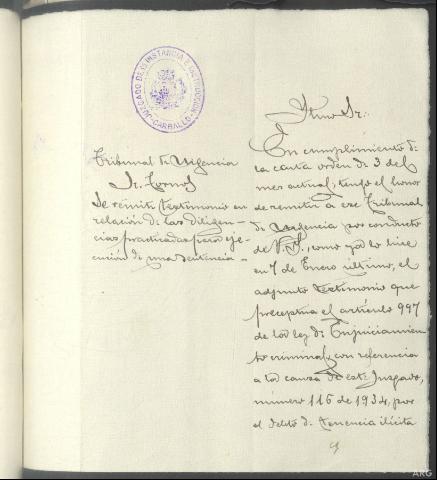 JUZGADO DE 1ª INSTANCIA E INSTRUCCION
CARBALLO
Tribunal de Urgencia
Sr.
Se remite testimonio en
relación de las diligen-
cias practicadas para eje-
cución de una sentencia -
Iltmo Sr.:
En cumplimiento de
la carta orden de 3 del
mes actual, tengo el honor
de remitir a ese Tribunal
de Urgencia por conducto
de V.S., como ya lo hice
en 7 de Enero último, el
adjunto testimonio que
preceptua el artículo 997
de la ley de Enjuiciamien
to criminal, con referencia
a la causa de este Juzgado,
número 116 de 1934, por
el delito de tenencia ilícita
ARG